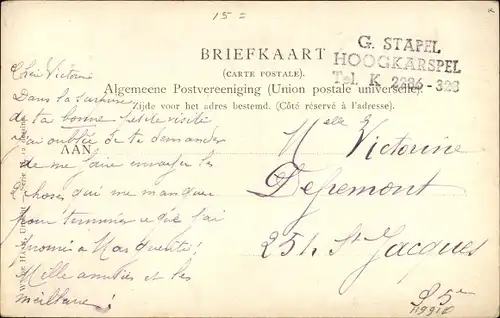 15 =
G. STAPEL
HOOGKARSPEL
Tel. K 2286-323
BRIEFKAART
(CARTE POSTALE).
Algemeene Postvereeniging (Union postale universelle).
Zijde voor het adres bestemd. (Côté réservé à l'adresse).
AAN
Chère Victorine
Dans la surprise
de ta bonne petite visite
j'ai oublié de te demander
de me faire envoyer les
choses qui me manquent
pour terminer ce que j'ai
promis à Marguerite!
Mille amitiés et les
meilleures!
Melle Victorine
Depremont
251, St Jacques